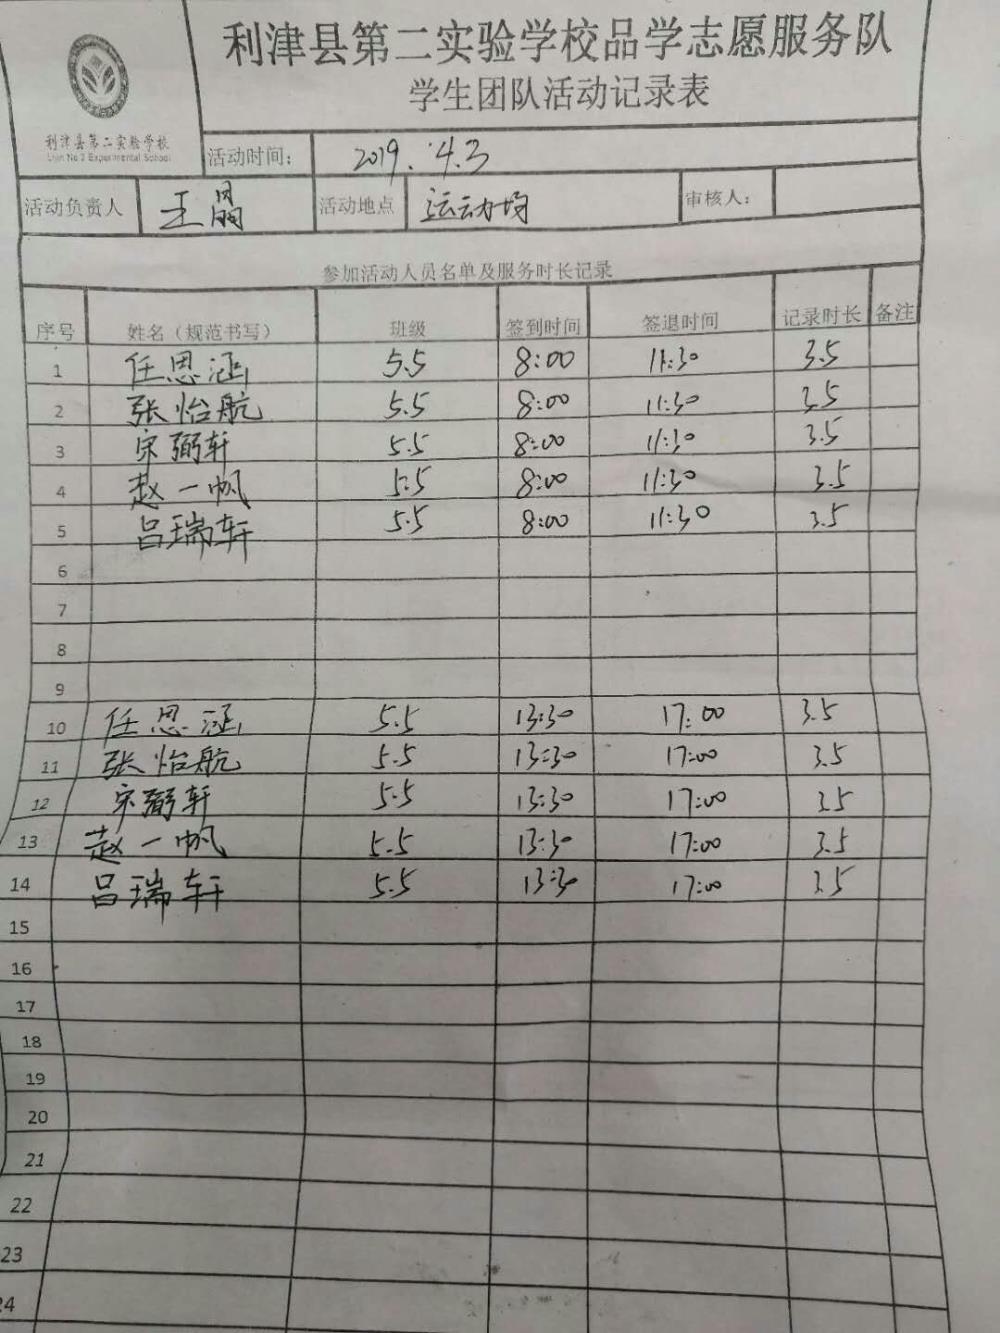 利津县第二实验学校品学志愿服务队
学生团队活动记录表
利津县第二实验学校
Lijin No 2 Experimental School
活动时间： 2019.4.3
活动负责人 王晶 活动地点 运动场 审核人：
参加活动人员名单及服务时长记录
序号 姓名（规范书写） 班级 签到时间 签退时间 记录时长 备注
1 任恩涵 5.5 8:00 11:30 3.5
2 张怡航 5.5 8:00 11:30 3.5
3 宋弼轩 5.5 8:00 11:30 3.5
4 赵一帆 5.5 8:00 11:30 3.5
5 吕瑞轩 5.5 8:00 11:30 3.5
6
7
8
9
10 任恩涵 5.5 13:30 17:00 3.5
11 张怡航 5.5 13:30 17:00 3.5
12 宋弼轩 5.5 13:30 17:00 3.5
13 赵一帆 5.5 13:30 17:00 3.5
14 吕瑞轩 5.5 13:30 17:00 3.5
15
16
17
18
19
20
21
22
23
24